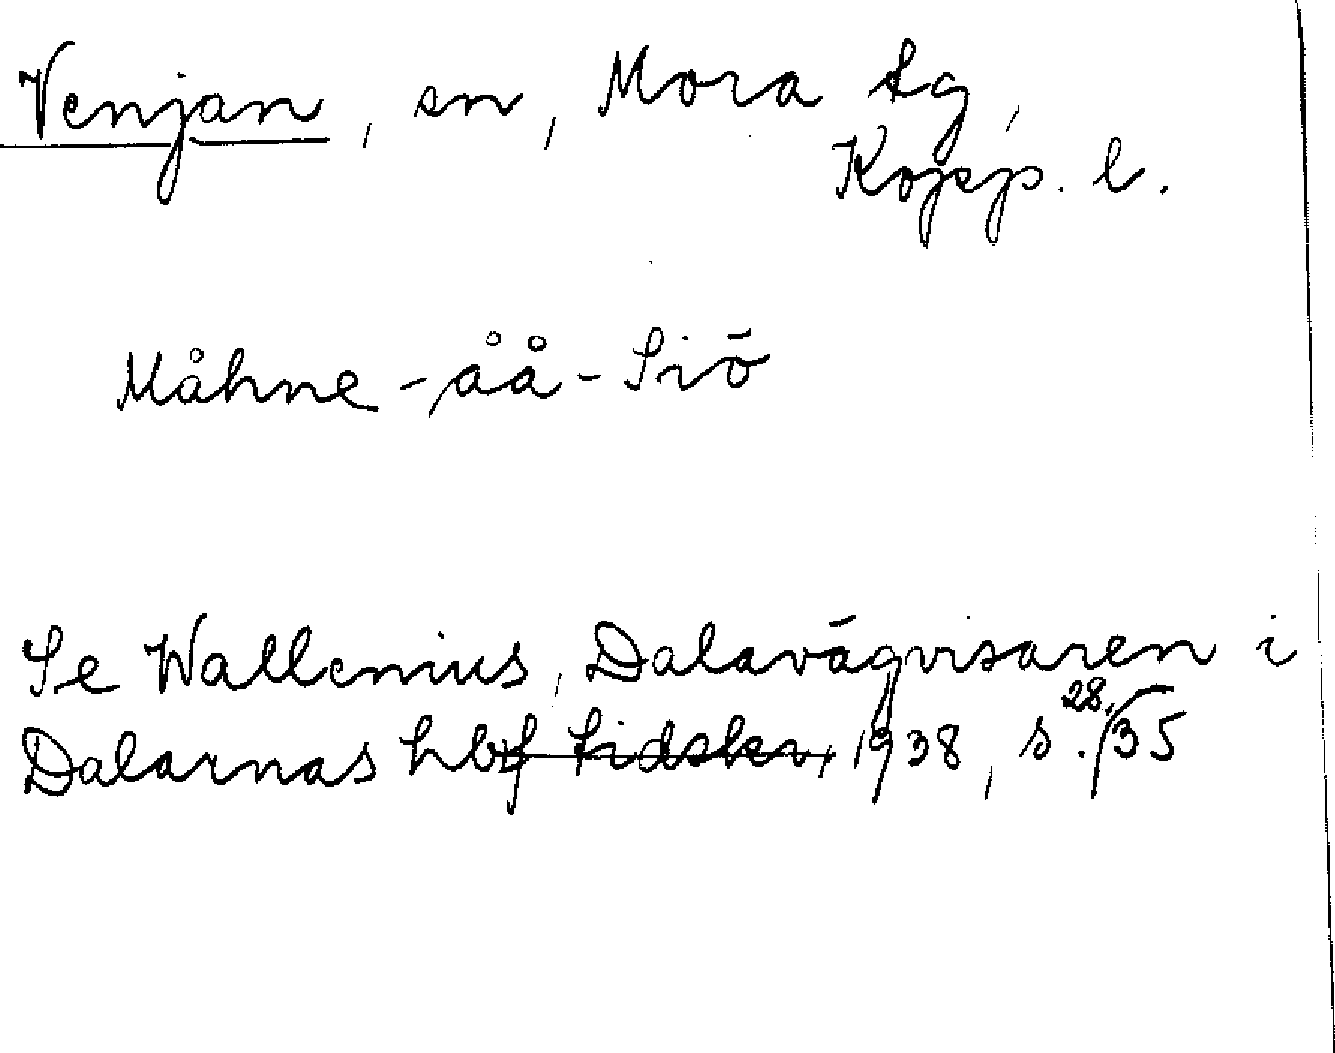 Venjan, sn, Mora tg,
Kopp. l.
Måhne-åå-Siö
Se Wallenius, Dalavägvisaren i
Dalarnas hbf tidskr, 1938, s. 28, 35